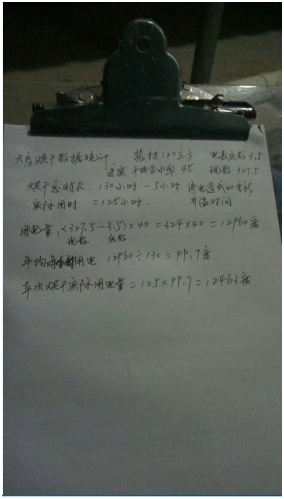 烘干数据统计: 装材120立方 电表底数3.5
进窑平均含水率45 现数327.5
烘干总时长: 130小时-5小时 停电造成的重新
实际用时: =125小时. 升温时间
用电量: (327.5-3.5)×40=324×40=12960度
现数 底数
平均每小时用电 12960÷130=99.7度
本次烘干实际用电量=125×99.7=12463度